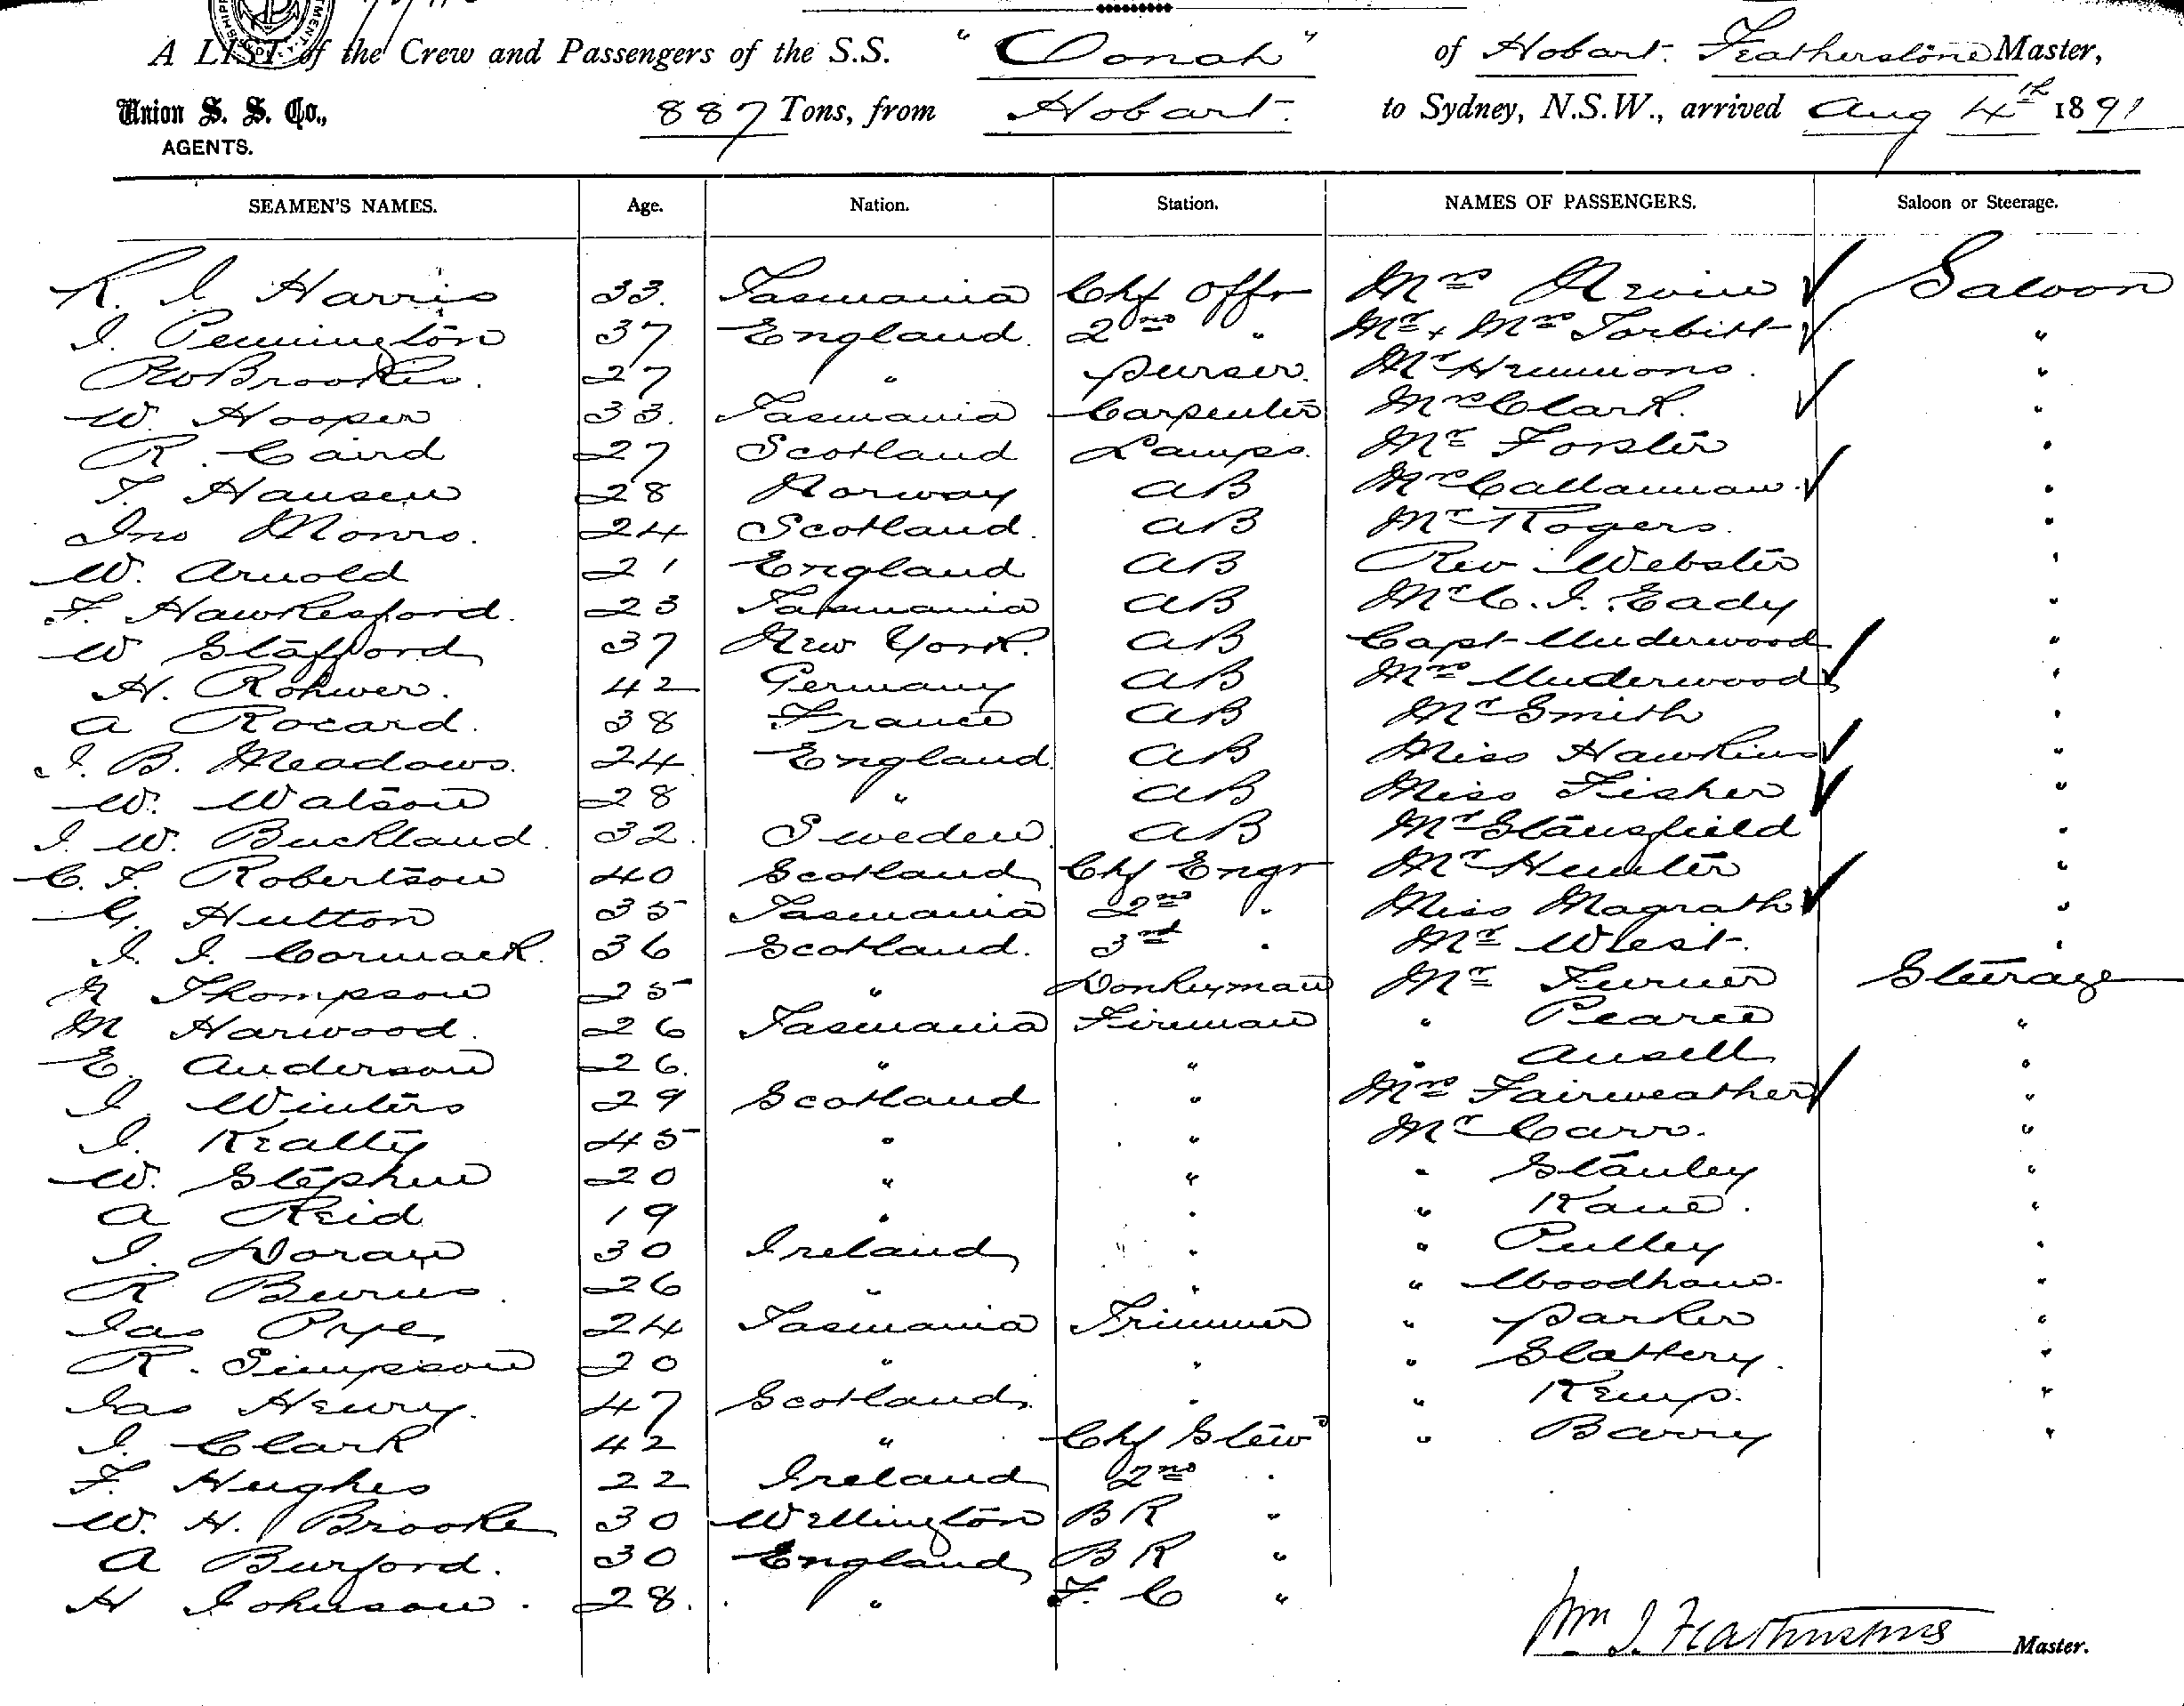 A LIST of the Crew and Passengers of the S.S. "Oonah" of Hobart. Featherstone Master,
Union S. S. Co., AGENTS. 887 Tons, from Hobart. to Sydney, N.S.W., arrived Aug 4th 1891
SEAMEN'S NAMES. Age. Nation. Station. NAMES OF PASSENGERS. Saloon or Steerage.
R. J. Harris 33. Tasmania Chf Offr Mrs Saloon
J. Pennington 37 England. 2nd " Mr + Mrs Torbitt "
RW Brookes. 27 " purser. Mr Hemmons. "
W. Hooper 33. Tasmania Carpenter Mrs Clark. "
R. Caird 27 Scotland Lamps. Mr Forster "
T. Hansen 28 Norway AB Mrs Callannan. "
Jno Monro. 24 Scotland. AB Mr Rogers. "
W. Arnold 21 England AB Rev Webster "
F. Hawkesford. 23 Tasmania AB Mr C. J. Eady "
W Stafford 37 New York. AB Capt Underwood "
H. Rohwer. 42 Germany AB Mrs Underwood "
A Rocard. 38 France AB Mr Smith "
J. B. Meadows. 24 England AB Miss Hawkins "
W. Watson 28 " AB Miss Fisher "
J. W. Buckland. 32. Sweden AB Mr Stansfield "
C. F. Robertson 40 Scotland Chf Engr Mr Hunter "
G. Hutton 35 Tasmania 2nd " Miss Magrath "
J. J. Cormack. 36 Scotland. 3rd " Mr West. "
N Thompson 25 " Donkeyman Mr Turner Steerage
M Harwood. 26 Tasmania Fireman " Pearce "
E. Anderson 26. " " " Ansell "
J. Winters 29 Scotland " Mrs Fairweather "
J. Kealty 45 " " Mr Carr. "
W. Stephen 20 " " " Stanley "
A Reid 19 " " " Kane. "
J. Doran 30 Ireland " " Pulley "
R Burns. 26 " " " Woodhouse. "
Jas Pype 24 Tasmania Trimmer " Parker "
R. Simpson 20 " " " Slattery. "
Jas Henry. 47 Scotland. " " Kemp. "
J. Clark 42 " Chf Stewd " Barry "
F. Hughes 22 Ireland 2nd "
W. H. Brooke 30 Wellington BR "
A Burford. 30 England BR "
H Johnson. 28. " F. C "
Wm J. Featherstone Master.